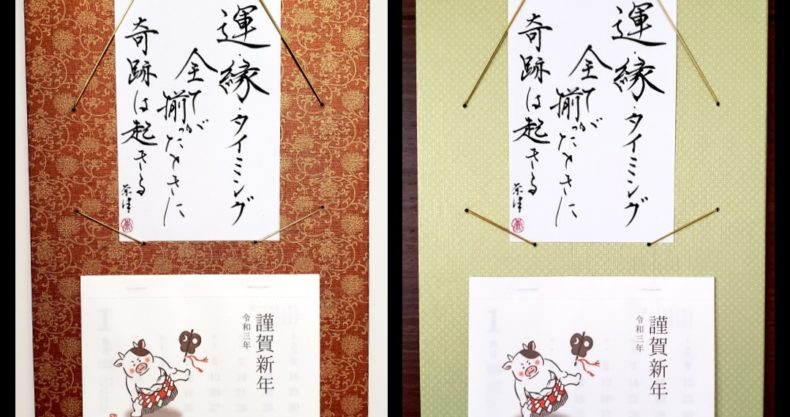 運・縁・タイミング
全て揃ったときに
奇跡は起きる
謹賀新年
令和三年
運・縁・タイミング
全て揃ったときに
奇跡は起きる
謹賀新年
令和三年